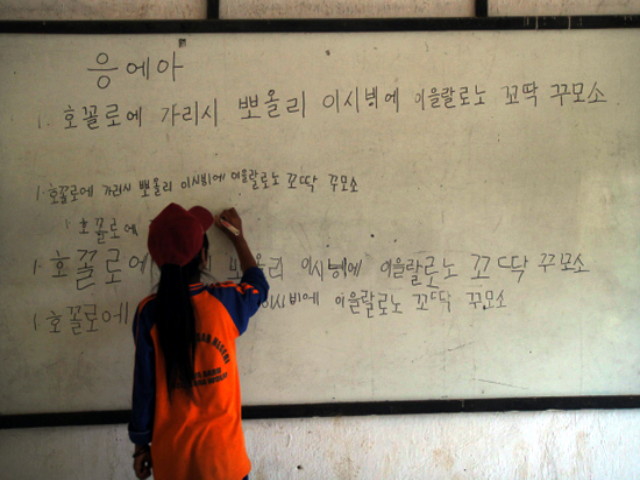 응에아
1. 호꼴로에 가리시 뽀올리 이시벙에 이을랄로노 꼬딱 꾸모소
1. 호꼴로에 가리시 뽀올리 이시비에 이을랄로노 꼬딱 꾸모소
1 호꼴로에
1. 호꼴로에 올리 이을랄로노 꼬딱 꾸모소
1 호꼴로에 이시비에 이을랄로노 꼬딱 꾸모소